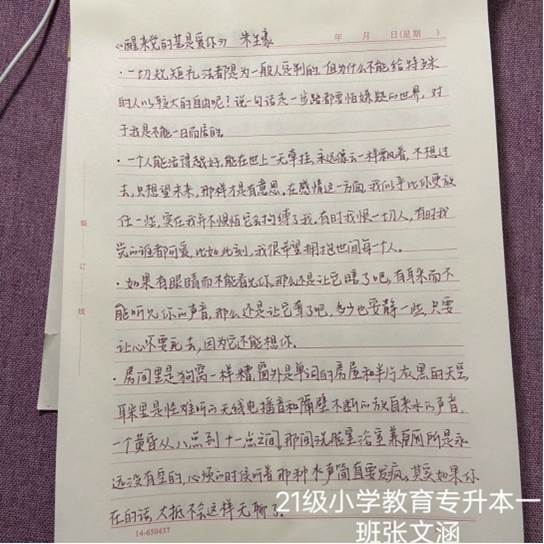 《醒来觉的甚是爱你》 朱生豪
年 月 日(星期 )
·一切规矩礼法都是为一般人定制的,但为什么不能给特殊
的人以较大的自由呢!说一句话走一步路都要怕嫌疑的世界,对
于我是不能一日而居的。
·一个人能活得越好,能在世上一无牵挂,永远像云一样飘着,不想过
去,只想望未来,那样才是有意思。在感情这一方面,我似乎比你更放
任一些,实在我并不惧怕它会拘缚了我。有时我恨一切人,有时我
觉的谁都可爱,比如此刻,我很希望拥抱世间每一个人。
·如果有眼睛而不能看见你,那么还是让它瞎了吧,有耳朵而不
能听见你的声音,那么还是让它聋了吧,多少也安静一些,只要
让心不要死去,因为它还能想你。
·房间里是狗窝一样糟,窗外是单调的房屋和半片灰黑的天空,
耳朵里是怪难听的无线电播音和隔壁不断的放自来水的声音,
一个黄昏从八点到十一点之间,那间洗脸室浴室兼厕所是永
远没有空的,心烦的时候听着那种水声简直要发疯,其实如果你
在的话,大抵不会这样无聊了。
装
订
线
14-650437
21级小学教育专升本一
班张文涵